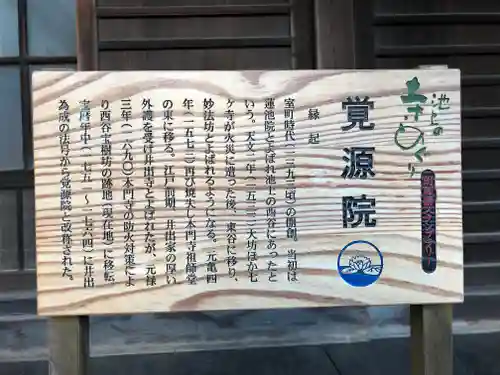 池上の
寺めぐり
覚源院
縁起
室町時代(一三九三年)の開創。当初は
蓮池院とよばれ池上の西谷にあったと
いう。天文二年(一五三三)大坊ほか七
ケ寺が火災に遭った後、東谷に移り、
妙法坊とよばれるようになる。元亀四
年(一五七三)再び焼失し本門寺祖師堂
の東に移る。江戸前期、井出家の厚い
外護を受け井出寺とよばれたが、元禄
三年(一六九〇)本門寺の防火対策によ
り西谷玉眼坊の跡地(現在地)に移転。
宝暦年中(一七五一〜一七六四)に井出
為成の法号から覚源院と改称された。